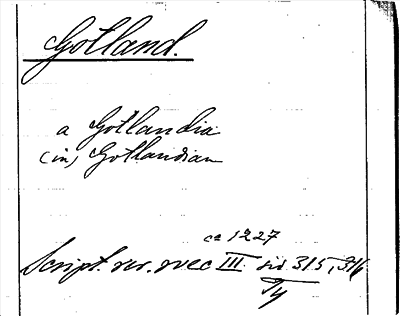 Gotland.
a Gotlandia
(in) Gotlandian
ca 1227
Script. rer. svec III. sid 315, 316